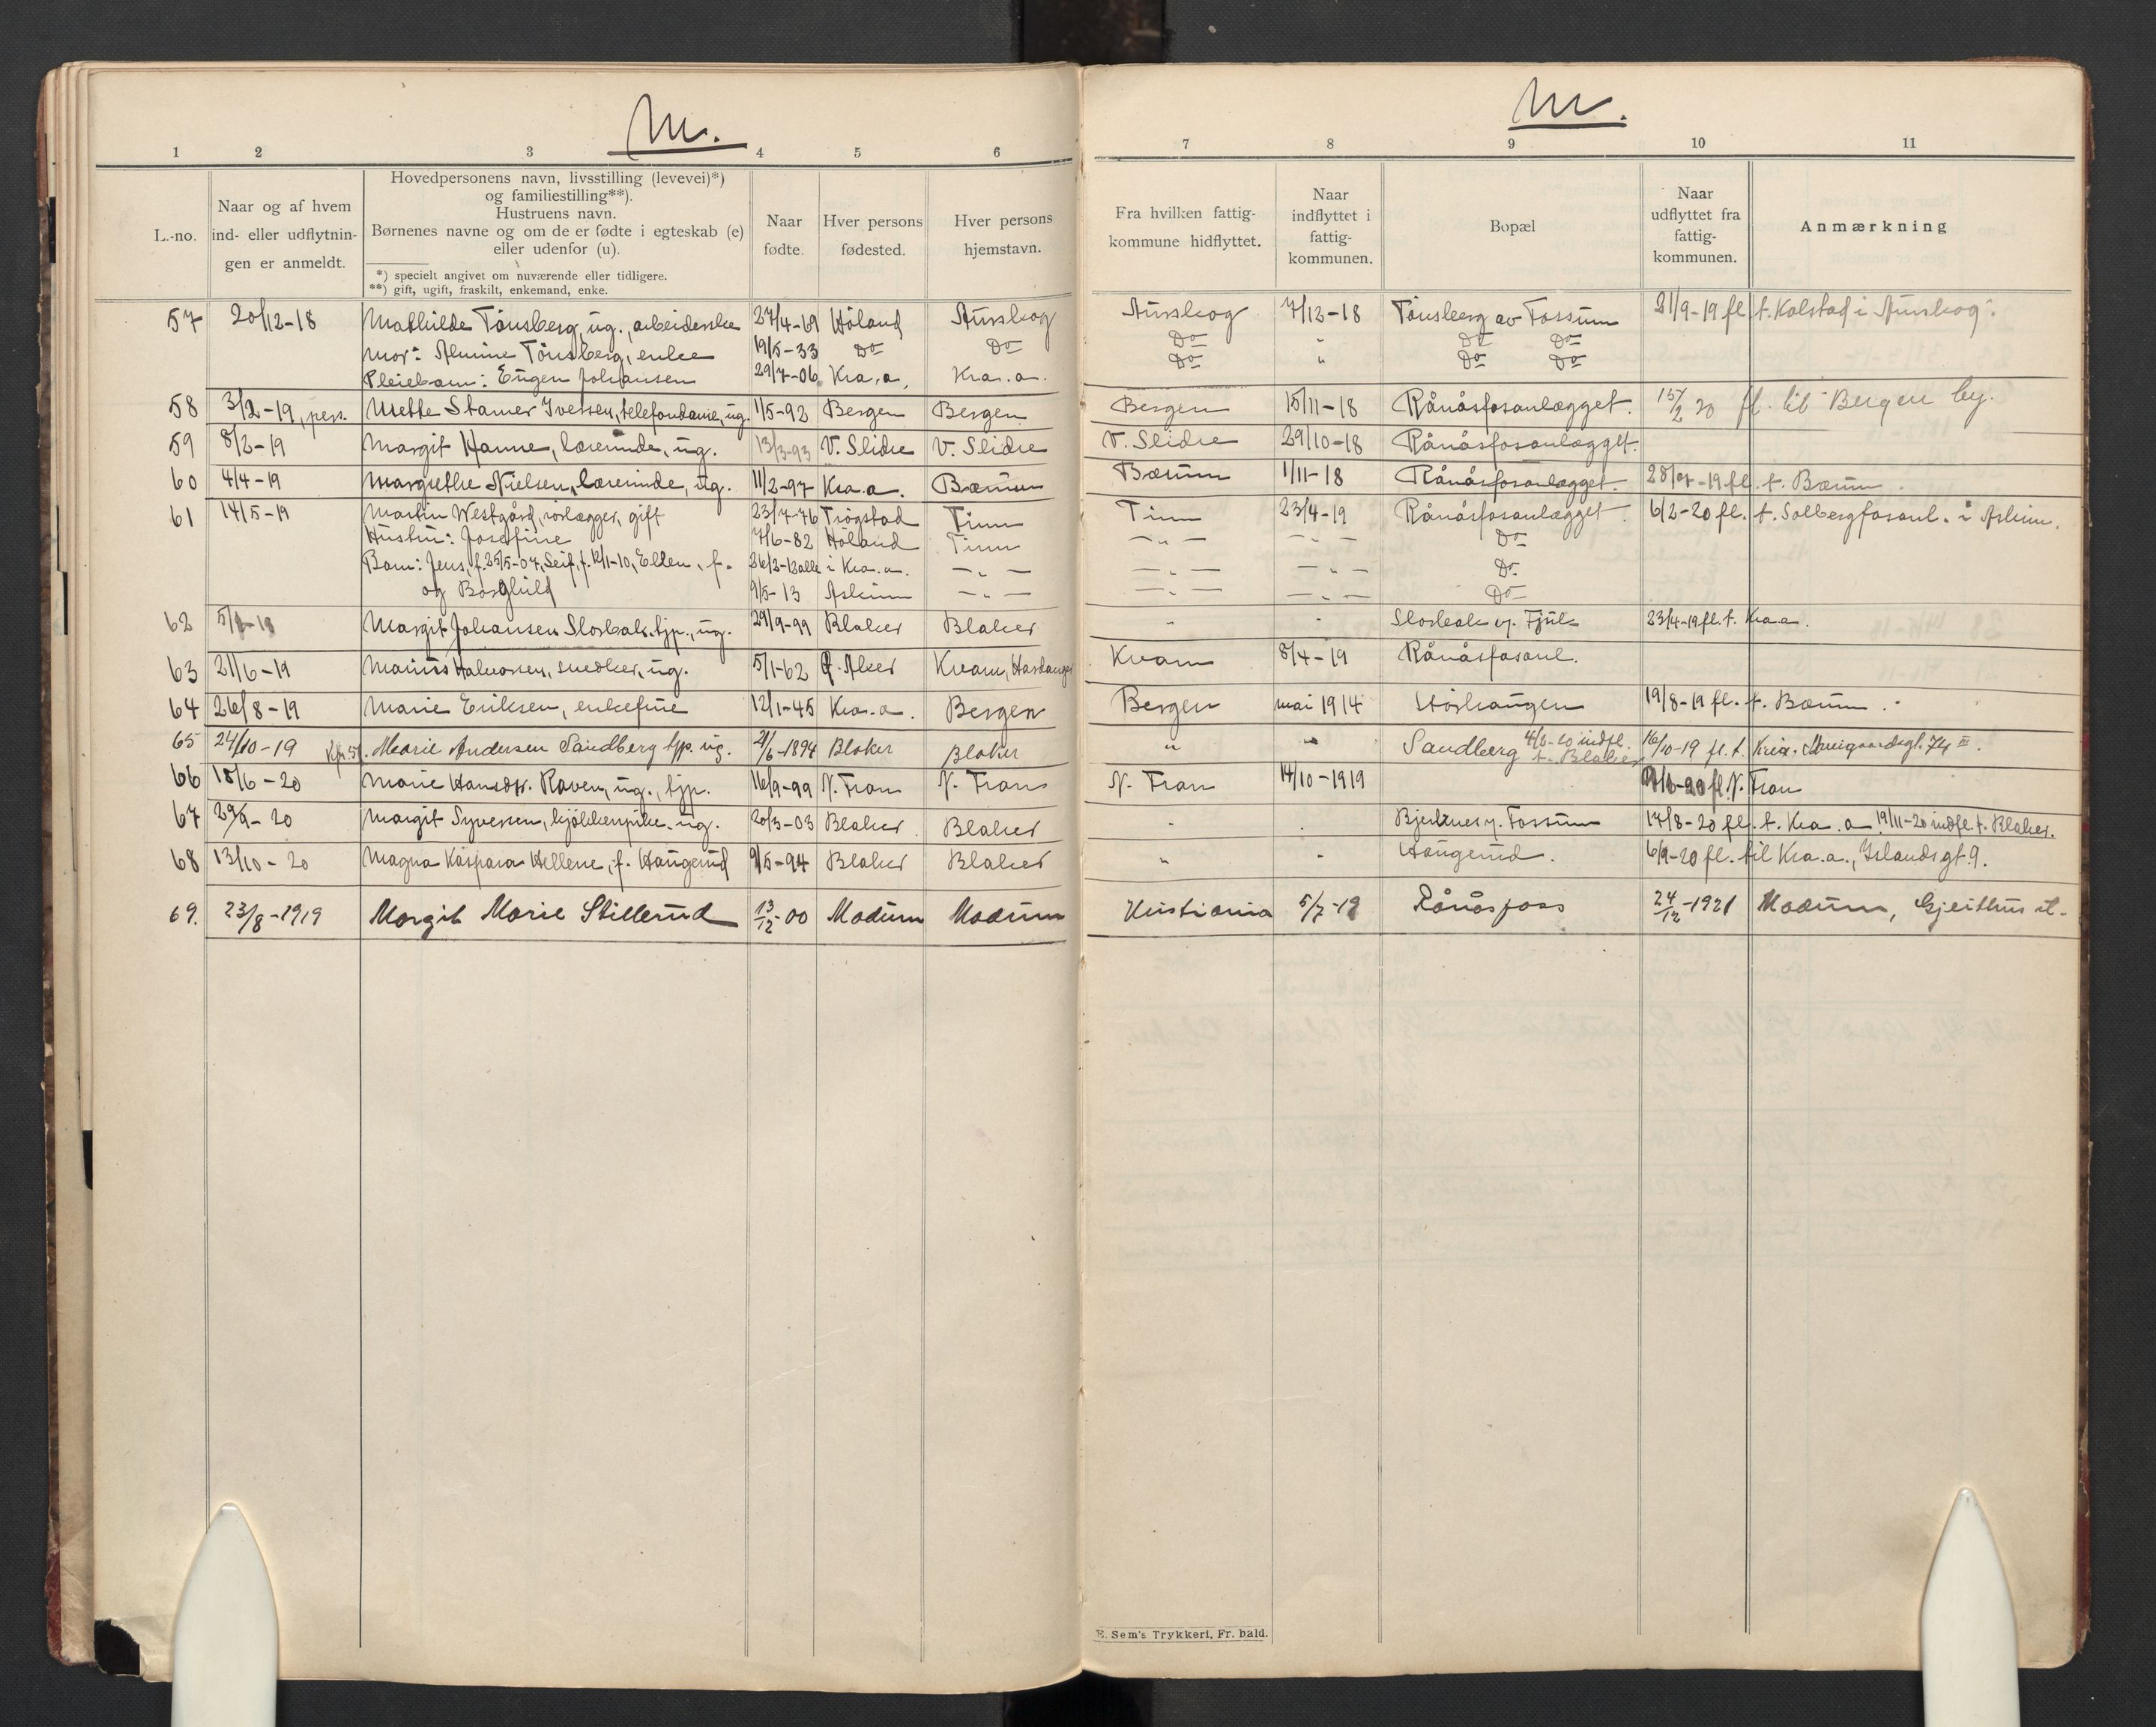 M.
1 2 3 4 5 6
L.-no.
Naar og af hvem
ind- eller udflytnin-
gen er anmeldt.
Hovedpersonens navn, livsstilling (levevei)*)
og familiestilling**).
Hustruens navn.
Børnenes navne og om de er fødte i egteskab (e)
eller udenfor (u).
*) specielt angivet om nuværende eller tidligere.
**) gift, ugift, fraskilt, enkemand, enke.
Naar
fødte.
Hver persons
fødested.
Hver persons
hjemstavn.
57 20/12-18 Mathilde Tönsberg, ug., arbeiderske 27/4-69 Höland Aurskog
Mor: Tönsberg, enke 19/5-33 Do Do
Pleiebarn: Eugen Johansen 29/7-06 Kra.a. Kra.a.
58 3/2-19, pers. Mette Stamer Iversen, telefondame, ug. 1/5-92 Bergen Bergen
59 8/2-19 Margit Hamre, lærerinde, ug. 13/3-93 V. Slidre V. Slidre
60 4/4-19 Margrethe Nielsen, lærerinde, ug. 11/2-97 Kra.a. Bærum
61 14/5-19 Martin Westgård, rörlægger, gift 23/7-76 Trögstad Tinn
Hustru: Josefine 7/6-82 Höland Tinn
Barn: Jens, f. 25/5-07, Leif, f. 12/1-10, Ellen, f. 26/2-12 alle i Kra.a. — " —
og Borghild 9/5-13 Askim — " —
62 Margit Johansen Slorbak, tjp., ug. 29/9-99 Blaker Blaker
63 21/6-19 Marius Halvorsen, snedker, ug. 5/1-62 Ø. Aker Kvam, Hardanger
64 26/8-19 Marie Eriksen, enkefrue 12/1-45 Kra.a. Bergen
65 24/10-19 Marie Andersen Sandberg tjp. ug. 2/6-1894 Blaker Blaker
66 18/6-20 Marie Hansdtr. Raven, ug., tjp. 16/9-99 N. Fron N. Fron
67 29/9-20 Margit Syversen, kjökkenpike, ug. 20/3-03 Blaker Blaker
68 13/10-20 Magna Kaspara Hellene, f. Haugerud 9/5-94 Blaker Blaker
69. 23/8-1919 Margit Marie Stillerud 13/12-00 Modum Modum
M.
7 8 9 10 11
Fra hvilken fattig-
kommune hidflyttet.
Naar
indflyttet i
fattig-
kommunen.
Bopæl
Naar
udflyttet fra
fattig-
kommunen.
Anmærkning
Aurskog 7/12-18 Tönsberg av Fossum 21/9-19 fl. t. Kolstad i Aurskog.
Do " Do Do
Do " Do Do
Bergen 15/11-18 Rånåsfosanlægget. 15/2 20 fl. til Bergen by.
V. Slidre 29/10-18 Rånåsfosanlægget.
Bærum 1/11-18 Rånåsfosanlægget. fl. t. Bærum.
Tinn 23/4-19 Rånåsfosanlægget. 6/2-20 fl. t. Solbergfosanl. i Askim.
— " — — " — Do
— " — — " — Do
— " — — " — Do
" " Slorbak v. Fjuk 23/4-19 fl. t. Kra.a.
Kvam 8/4-19 Rånåsfosanl.
Bergen mai 1914 Störhaugen 19/8-19 fl. t. Bærum.
" " Sandberg 4/6-20 indfl. t. Blaker 16/10-19 fl. t. Kria. 74 III.
N. Fron 14/10-1919 fl. N. Fron
" " Bjerknes v. Fossum 17/8-20 fl. t. Kra.a. 19/11-20 indfl. t. Blaker.
" " Haugerud. 6/9-20 fl. til Kra.a., Islandsgt. 9.
Kristiania 5/7-19 Rånåsfoss 24/12-1921 Modum, Gjeithus st.
E. Sem's Trykkeri, Fr. hald.